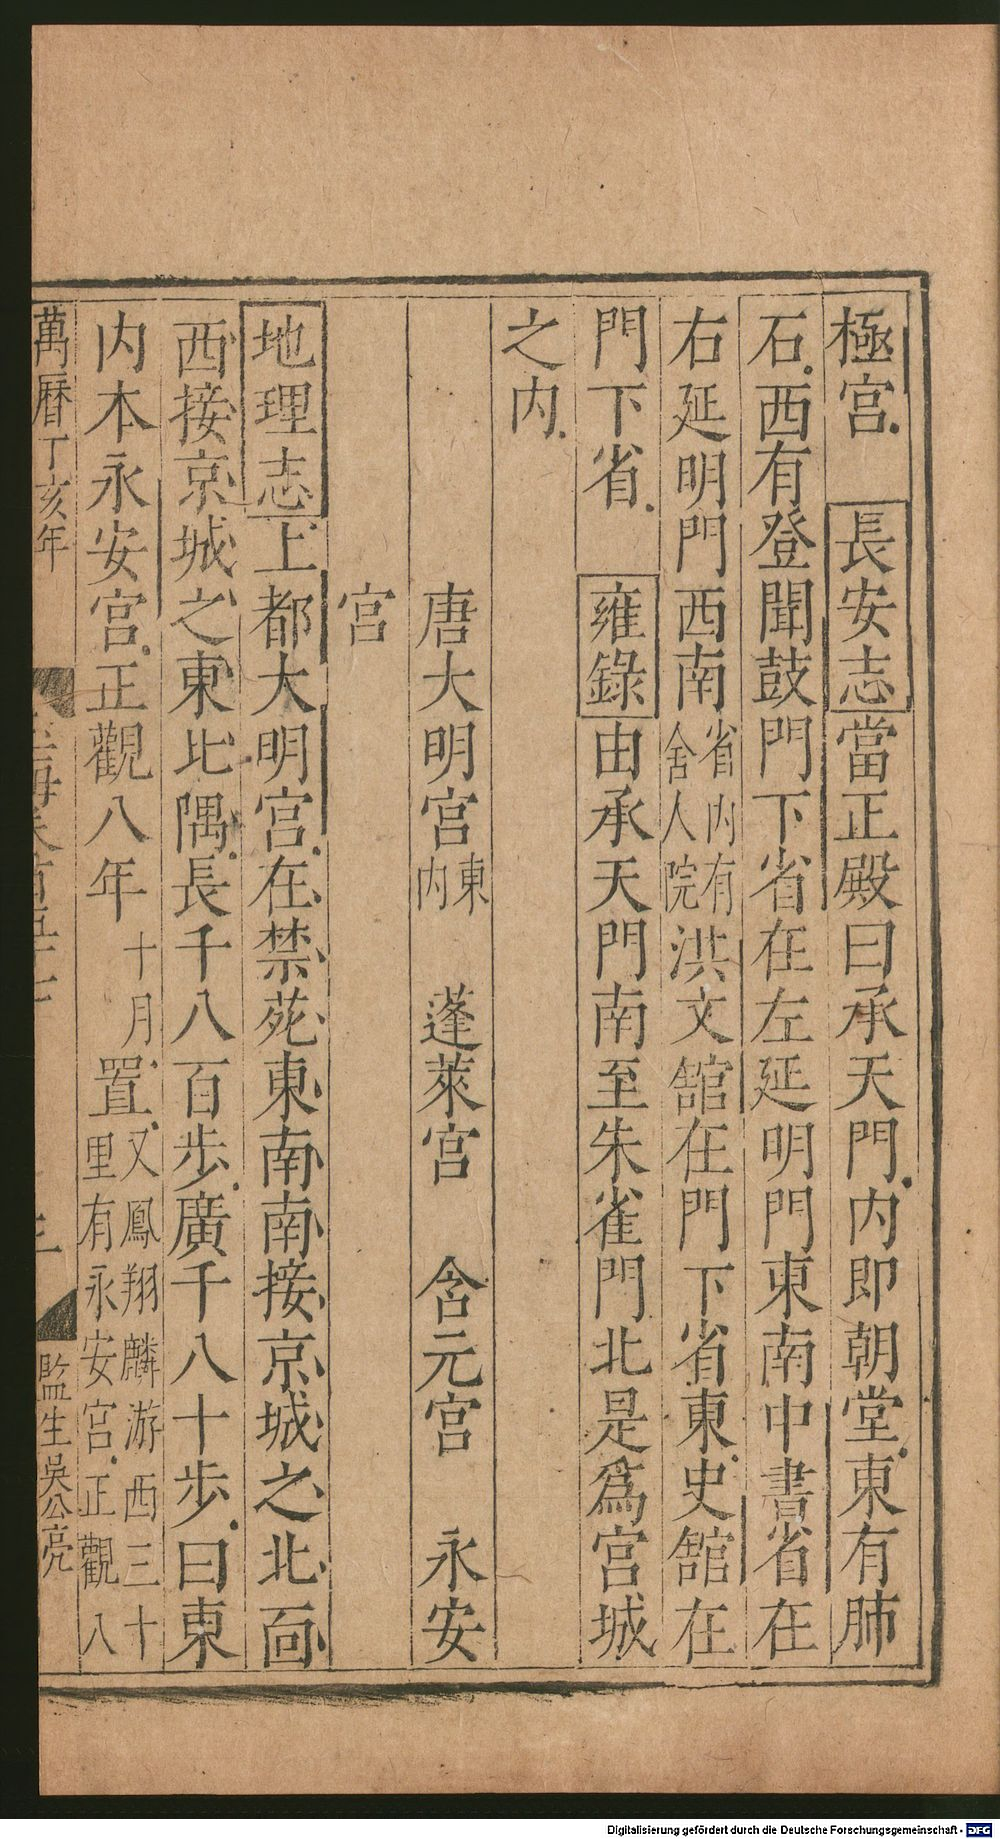 極宮　長安志當正殿曰承天門内即朝堂東有肺
石西有登聞鼓門下省在左延明門東南中書省在
右延明門西南省内有舍人院洪文館在門下省東史館在
門下省　雍錄由承天門南至朱雀門北是爲宮城
之内
唐大明宮東内　蓬萊宮　含元宮　永安
宮
地理志上都大明宮在禁苑東南南接京城之北面
西接京城之東北隅長千八百步廣千八十步曰東
内本永安宮正觀八年十月置又鳳翔麟游西三十里有永安宮正觀八
萬曆丁亥年
監生吳公亮
Digitalisierung gefördert durch die Deutsche Forschungsgemeinschaft - DFG